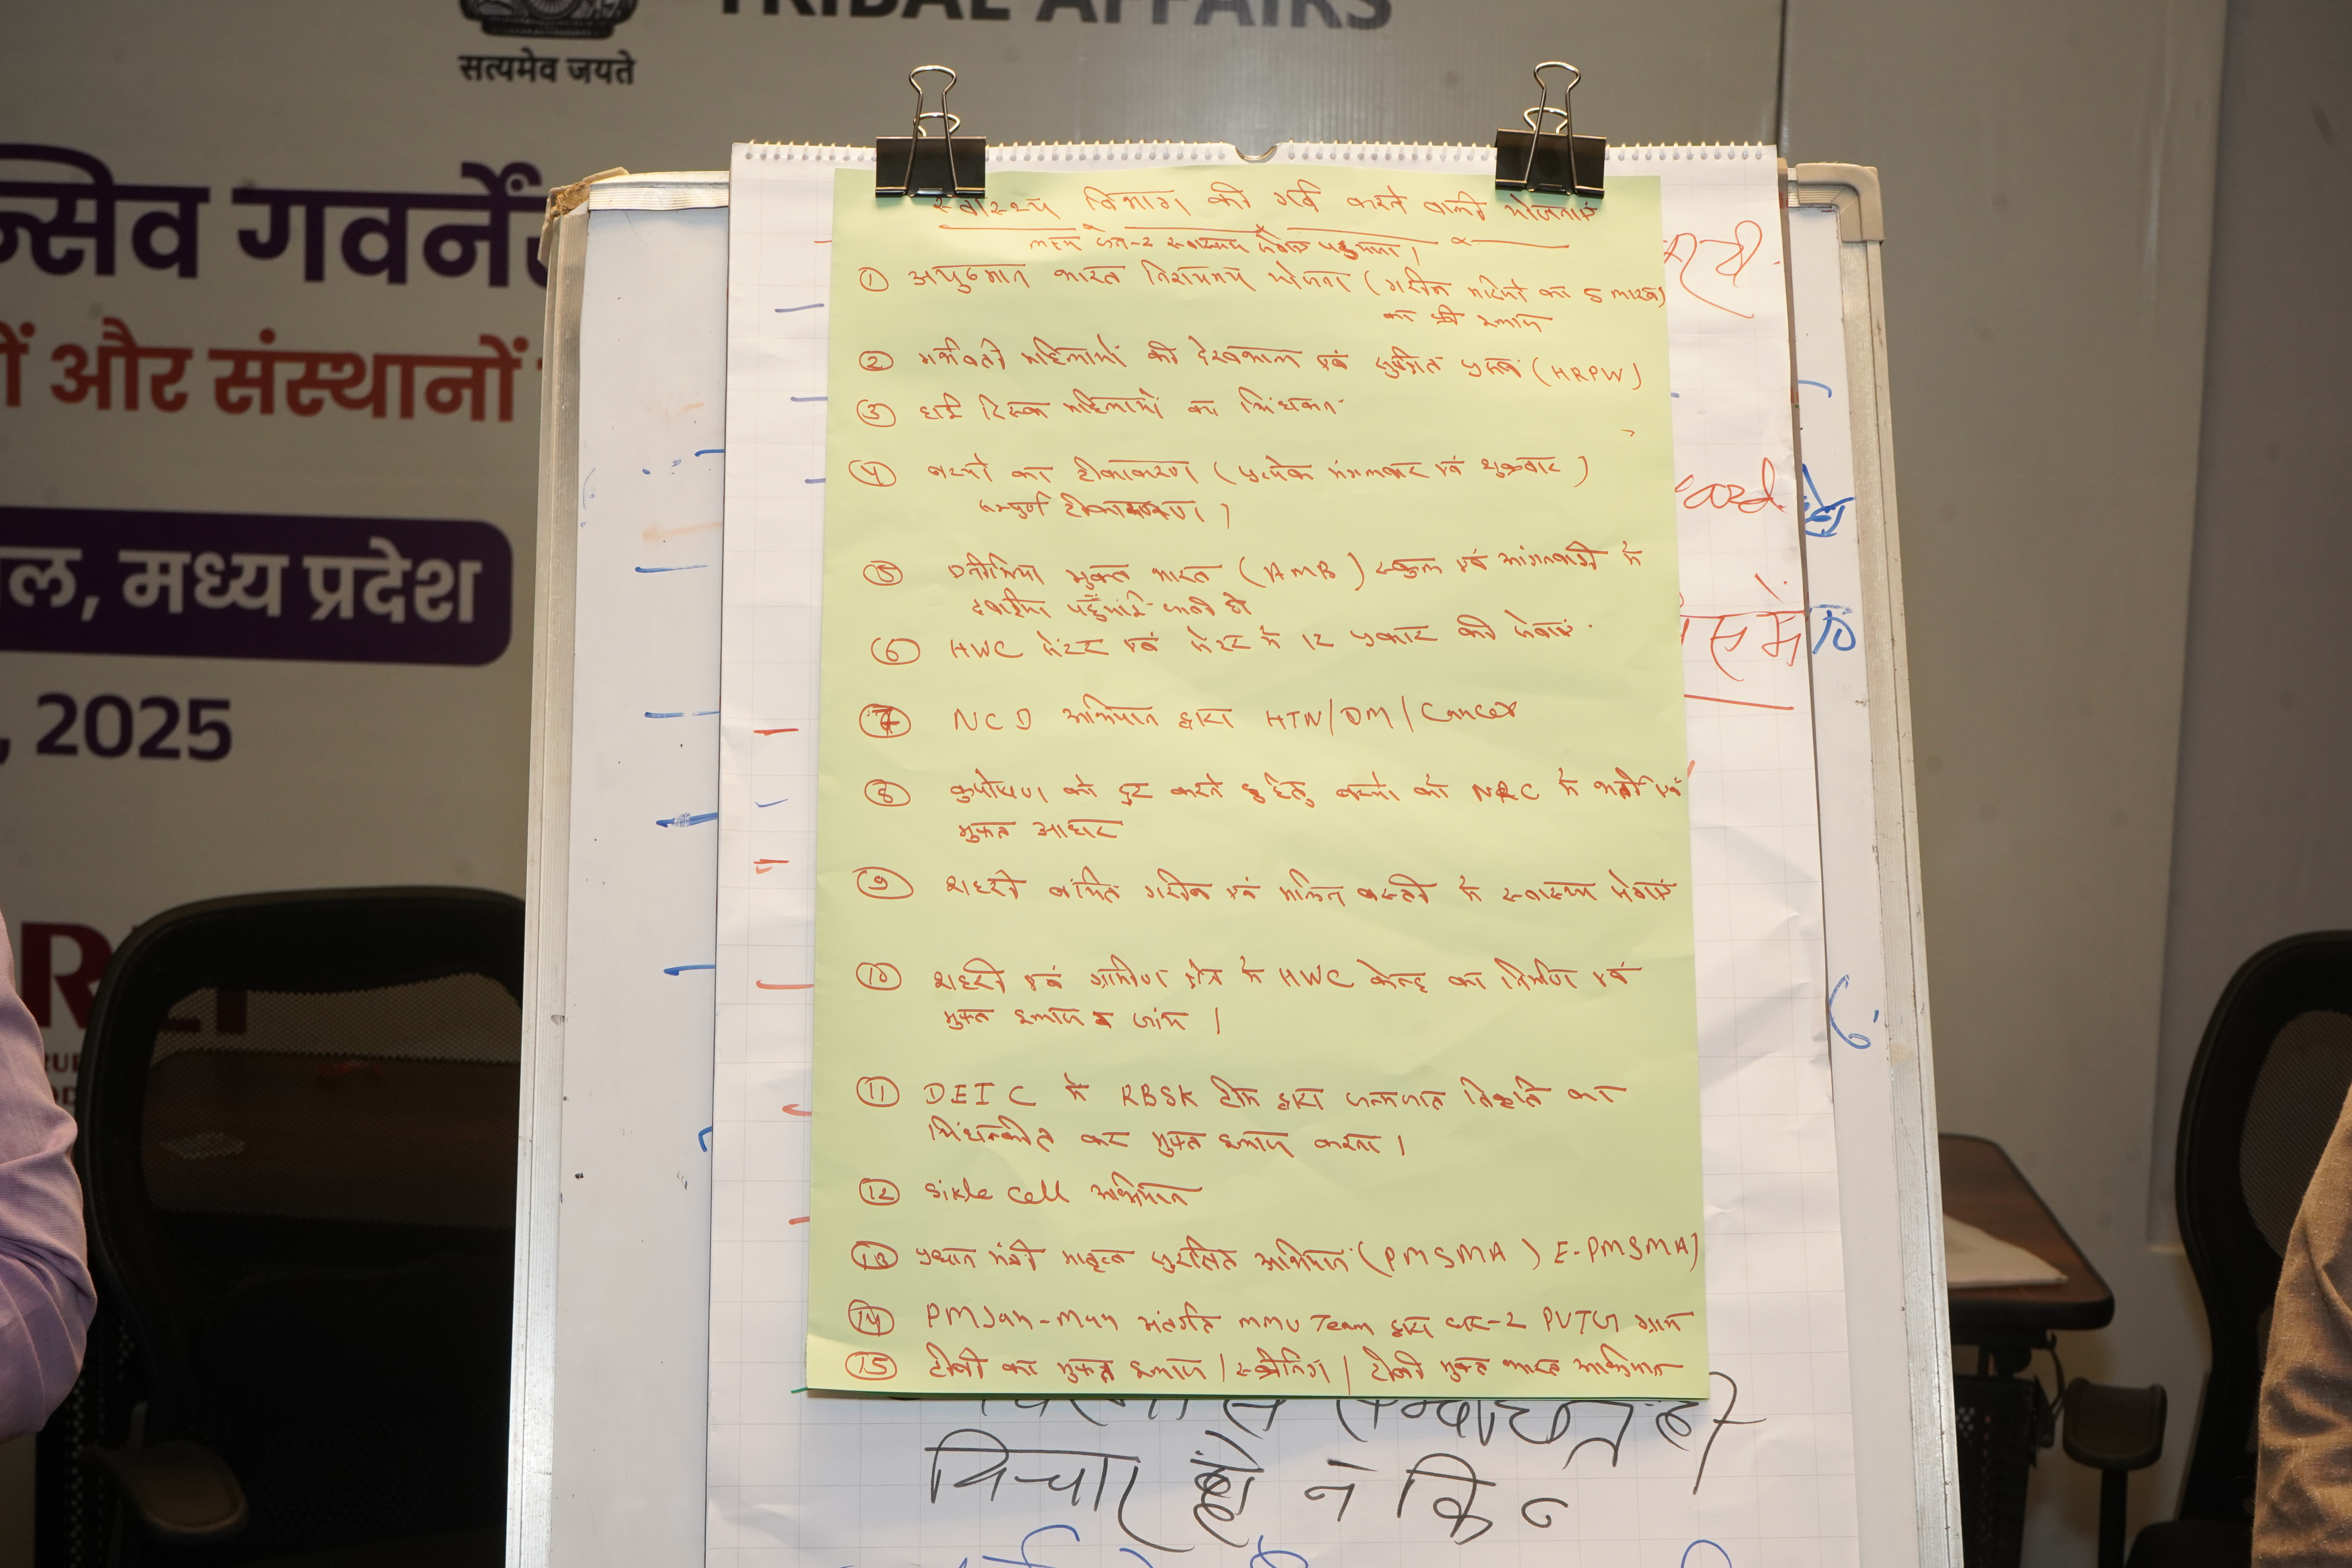 TRIBAL AFFAIRS
सत्यमेव जयते
न्सिव गवर्नें
ों और संस्थानों
ल, मध्य प्रदेश
, 2025
स्वास्थ्य विभाग की गर्व करने वाली योजनाएं
स्वास्थ्य सेवाएं पहुंचाना।
① आयुष्मान भारत निरामयम योजना (गरीब मरीजों का 5 लाख)
का फ्री इलाज
② गर्भवती महिलाओं की देखभाल एवं सुरक्षित प्रसव (HRPW)
③ हाई रिस्क महिलाओं का चिंहाकन
④ बच्चों का टीकाकरण (प्रत्येक मंगलवार एवं शुक्रवार)
सम्पुर्ण टीकाकरण।
⑤ एनीमिया मुक्त भारत (AMB) स्कुल एवं आंगनवाडी में
दवाईया पहुँचाई जाती है
⑥ HWC सेंटर एवं सेंटर में 12 प्रकार की सेवाएं
⑦ NCD अभियान द्वारा HTN/DM/Cancer
⑧ कुपोषण को दुर करने हेतु बच्चों को NRC में भर्ती एवं
मुफ्त आहार
⑨ शहरी वंचित गरीब एवं मलिन बस्ती में स्वास्थ्य सेवाएं
⑩ शहरी एवं ग्रामीण क्षेत्र में HWC केन्द्र का निर्माण एवं
मुफ्त इलाज व जांच।
⑪ DEIC में RBSK टीम द्वारा जन्मजात विकृति का
चिंहांकित कर मुफ्त इलाज करना।
⑫ Sikle cell अभियान
⑬ प्रधान मंत्री मातृत्व सुरक्षित अभियान (PMSMA) E-PMSMA)
⑭ PM Jan-Man अंतर्गत MMU Team द्वारा घर-2 PVTG ग्राम
⑮ टीबी का मुफ्त इलाज / स्क्रीनिंग / टीबी मुक्त भारत अभियान
विचार हो न कि